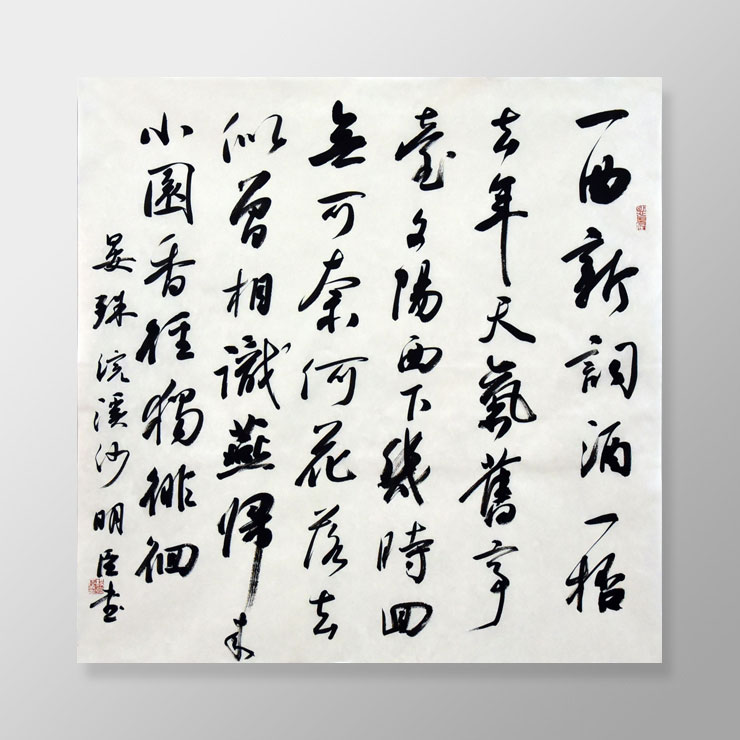 一曲新詞酒一杯
去年天氣舊亭
臺夕陽西下幾時回
無可奈何花落去
似曾相識燕歸來
小園香徑獨徘徊
晏殊浣溪沙明臣书